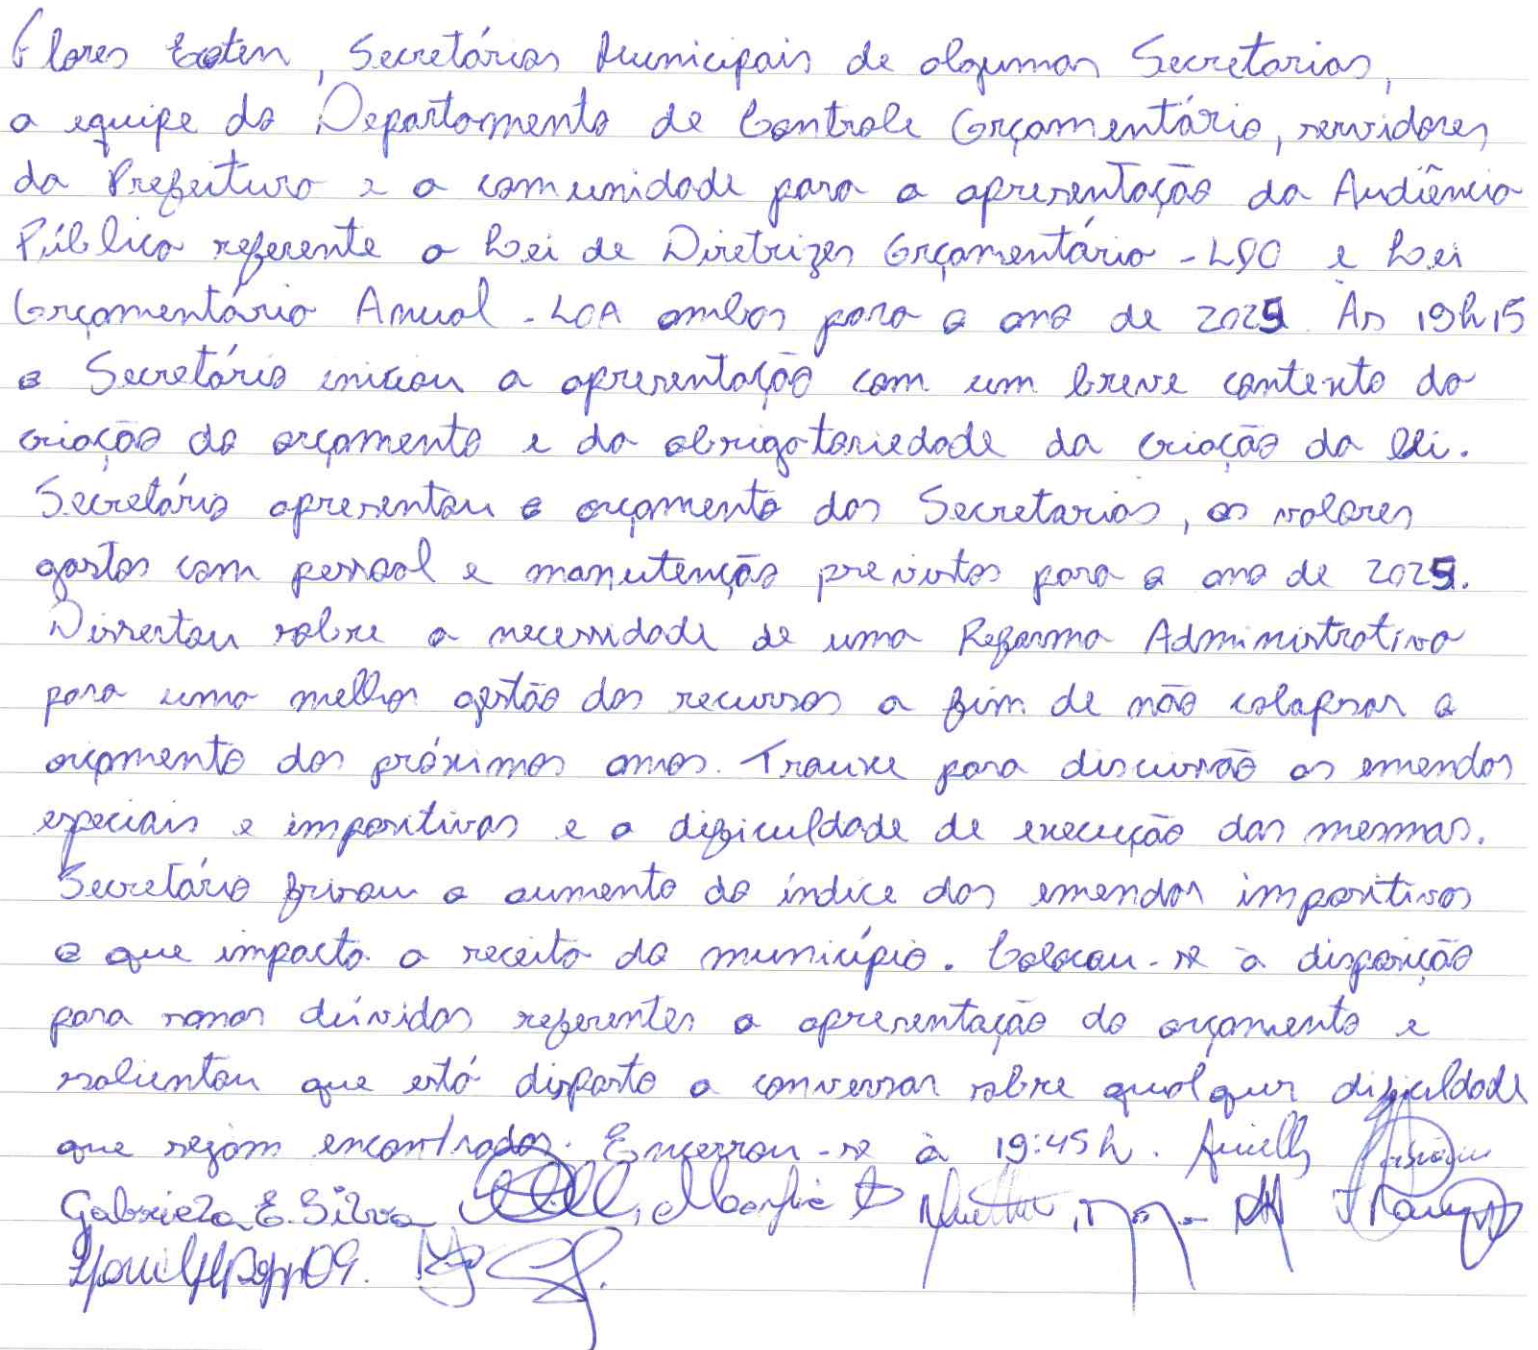 Flores Exten, Secretários Municipais de algumas Secretarias,
a equipe do Departamento de Controle Orçamentário, servidores
da Prefeitura e a comunidade para a apresentação da Audiência
Pública referente a Lei de Diretrizes Orçamentária - LDO e Lei
Orçamentária Anual - LOA ambos para o ano de 2025. Às 19h15
o Secretário iniciou a apresentação com um breve contexto da
criação do orçamento e da obrigatoriedade da criação da lei.
Secretário apresentou o orçamento das Secretarias, os valores
gastos com pessoal e manutenção previstos para o ano de 2025.
Dissertou sobre a necessidade de uma Reforma Administrativa
para uma melhor gestão dos recursos a fim de não colapsar o
orçamento dos próximos anos. Trouxe para discussão as emendas
especiais e impositivas e a dificuldade de execução das mesmas.
Secretário frisou o aumento do índice das emendas impositivas
o que impacta a receita do município. Colocou-se à disposição
para sanar dúvidas referentes a apresentação do orçamento e
salientou que está disposto a conversar sobre qualquer dificuldade
que sejam encontradas. Encerrou-se à 19:45h.
Gabriela E. Silva